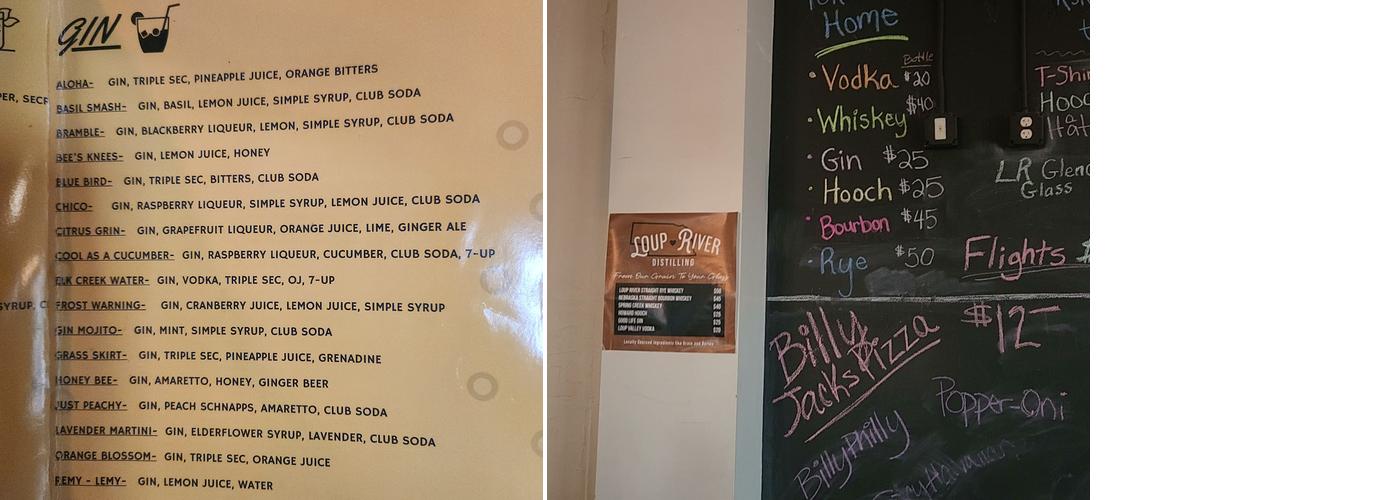 GIN
ALOHA- GIN, TRIPLE SEC, PINEAPPLE JUICE, ORANGE BITTERS
BASIL SMASH- GIN, BASIL, LEMON JUICE, SIMPLE SYRUP, CLUB SODA
BRAMBLE- GIN, BLACKBERRY LIQUEUR, LEMON, SIMPLE SYRUP, CLUB SODA
BEE'S KNEES- GIN, LEMON JUICE, HONEY
BLUE BIRD- GIN, TRIPLE SEC, BITTERS, CLUB SODA
CHICO- GIN, RASPBERRY LIQUEUR, SIMPLE SYRUP, LEMON JUICE, CLUB SODA
CITRUS GRIN- GIN, GRAPEFRUIT LIQUEUR, ORANGE JUICE, LIME, GINGER ALE
COOL AS A CUCUMBER- GIN, RASPBERRY LIQUEUR, CUCUMBER, CLUB SODA, 7-UP
ELK CREEK WATER- GIN, VODKA, TRIPLE SEC, OJ, 7-UP
FROST WARNING- GIN, CRANBERRY JUICE, LEMON JUICE, SIMPLE SYRUP
GIN MOJITO- GIN, MINT, SIMPLE SYRUP, CLUB SODA
GRASS SKIRT- GIN, TRIPLE SEC, PINEAPPLE JUICE, GRENADINE
HONEY BEE- GIN, AMARETTO, HONEY, GINGER BEER
JUST PEACHY- GIN, PEACH SCHNAPPS, AMARETTO, CLUB SODA
LAVENDER MARTINI- GIN, ELDERFLOWER SYRUP, LAVENDER, CLUB SODA
ORANGE BLOSSOM- GIN, TRIPLE SEC, ORANGE JUICE
REMY - LEMY- GIN, LEMON JUICE, WATER
LOUP RIVER
DISTILLING
From Our Grain To Your Glass
LOUP RIVER STRAIGHT RYE WHISKEY $50
NEBRASKA STRAIGHT BOURBON WHISKEY $45
SPRING CREEK WHISKEY $40
HOWARD HOOCH $25
GOOD LIFE GIN $25
LOUP VALLEY VODKA $20
Locally Sourced Ingredients like Grain and Barley
Home
Bottle
Vodka $20
Whiskey $40
Gin $25
Hooch $25
Bourbon $45
Rye $50
T-Shir
Hooc
Hat
LR Glenc
Glass
Flights $
Billy
Jacks Pizza
$12-
Popper-Oni
BillyPhilly